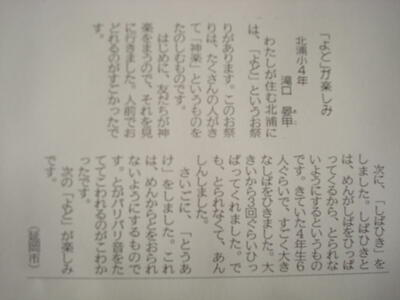 「よど」が楽しみ
北浦小4年
滝口 晏甲
わたしが住む北浦に
は、「よど」というお祭
りがあります。このお祭
りは、たくさんの人がき
て「神楽」というものを
たのしむものです。
はじめに、友だちが神
楽をまうので、それを見
に行きました。人前でお
どれるのがすごかったで
す。
次に、「しばひき」を
しました。しばひきと
は、めんがしばをひっぱ
ってくるから、とられな
いようにするというもの
です。きていた4年生6
人ぐらいで、すごく大き
なしばをひきました。大
きいから3回ぐらいひっ
ぱってくれました。で
も、とられなくて、あん
しんしました。
さいごに、「とうあ
け」をしました。これ
は、めんからとをおられ
ないようにするもので
す。とがバリバリ音をた
ててこわれるのがこわか
ったです。
次の「よど」が楽しみ
です。
(延岡市)